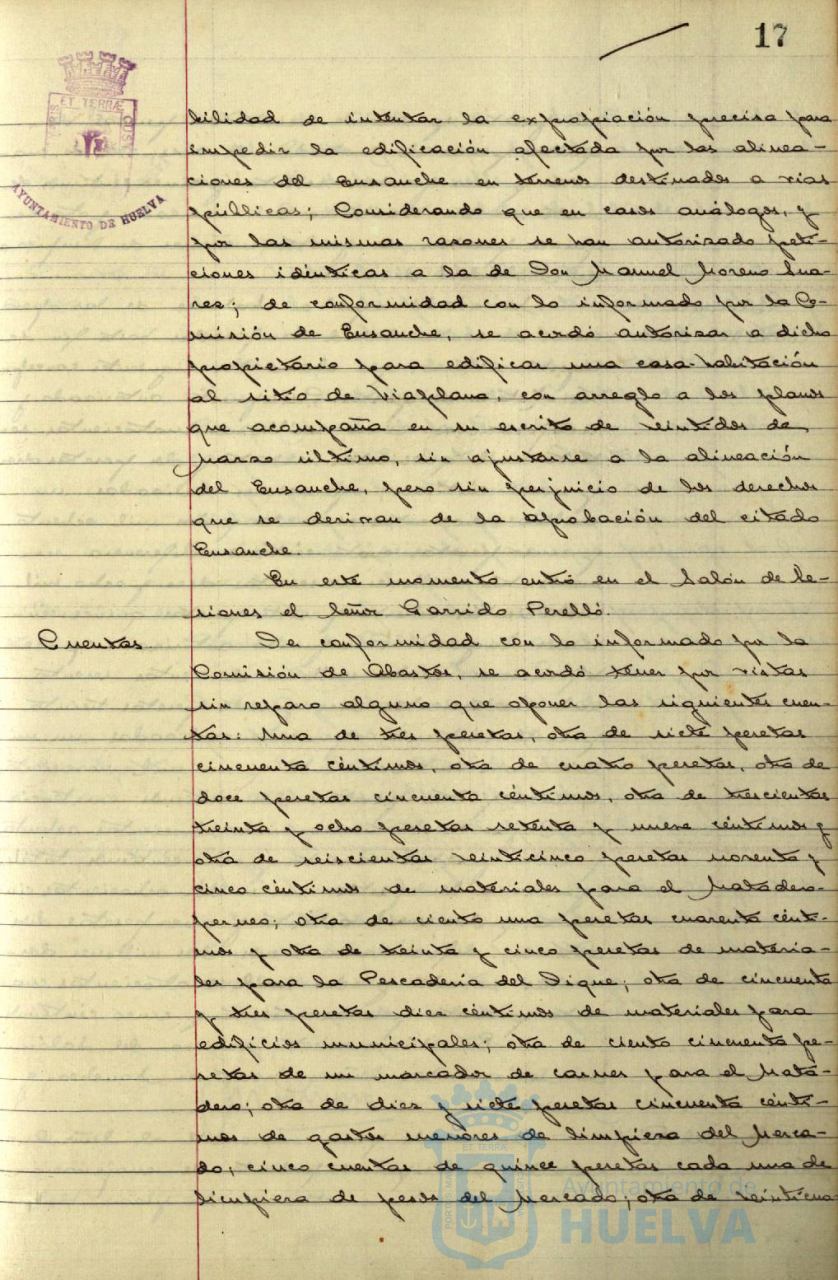 17
PORTUS MARIS ET TERRÆ CUSTODIA
AYUNTAMIENTO DE HUELVA
bilidad de intentar la expropiación precisa para
impedir la edificación afectada por las alinea-
ciones del Ensanche en terrenos destinados a vías
públicas; Considerando que en casos análogos, y
por las mismas razones se han autorizado peti-
ciones idénticas a la de Don Manuel Moreno Sua-
rez; de conformidad con lo informado por la Co-
misión de Ensanche, se acordó autorizar a dicho
propietario para edificar una casa-habitación
al sitio de Viaplana, con arreglo a los planos
que acompaña en su escrito de veintidos de
Marzo último, sin ajustarse a la alineación
del Ensanche, pero sin perjuicio de los derechos
que se derivan de la aprobación del citado
Ensanche.
En este momento entró en el Salón de Se-
siones el Señor Garrido Perelló.
Cuentas. De conformidad con lo informado por la
Comisión de Abastos, se acordó tener por vistas
sin reparo alguno que oponer las siguientes cuen-
tas: Una de tres pesetas, otra de siete pesetas
cincuenta céntimos, otra de cuatro pesetas, otra de
doce pesetas cincuenta céntimos, otra de trescientas
treinta y ocho pesetas setenta y nueve céntimos y
otra de seiscientas veinticinco pesetas noventa y
cinco céntimos de materiales para el Matadero-
perneo; otra de ciento una pesetas cuarenta cénti-
mos y otra de treinta y cinco pesetas de materia-
les para la Pescadería del Dique; otra de cincuenta
y tres pesetas diez céntimos de materiales para
edificios municipales; otra de ciento cincuenta pe-
setas de un marcador de carnes para el Mata-
dero; otra de diez y siete pesetas cincuenta cénti-
mos de gastos menores de limpieza del Merca-
do; cinco cuentas de quince pesetas cada una de
limpieza de pesos del Mercado; otra de veinticua-
Ayuntamiento de
HUELVA